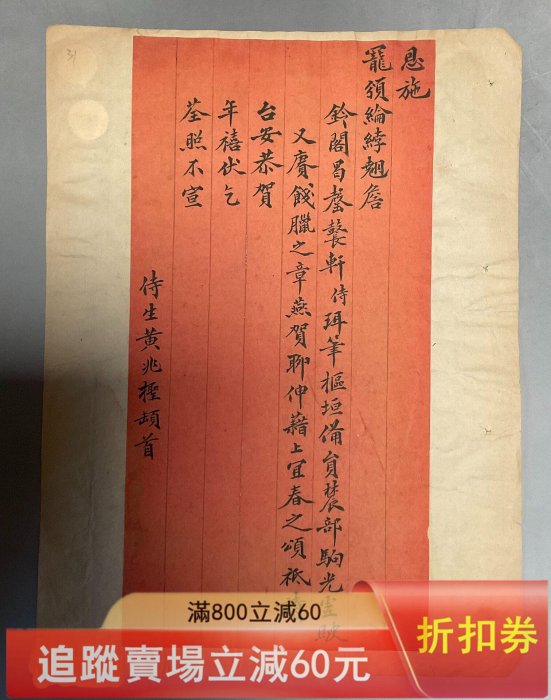 31
恩施
寵領綸綍翹詹
鈴閣曷罄鼚軒侍珥筆樞垣備員農部駒光
又賡餞臘之章燕賀聊伸藉上宜春之頌祗
台安恭賀
年禧伏乞
荃照不宣
侍生黃兆檉頓首
滿800立減60
追蹤賣場立減60元
折扣券